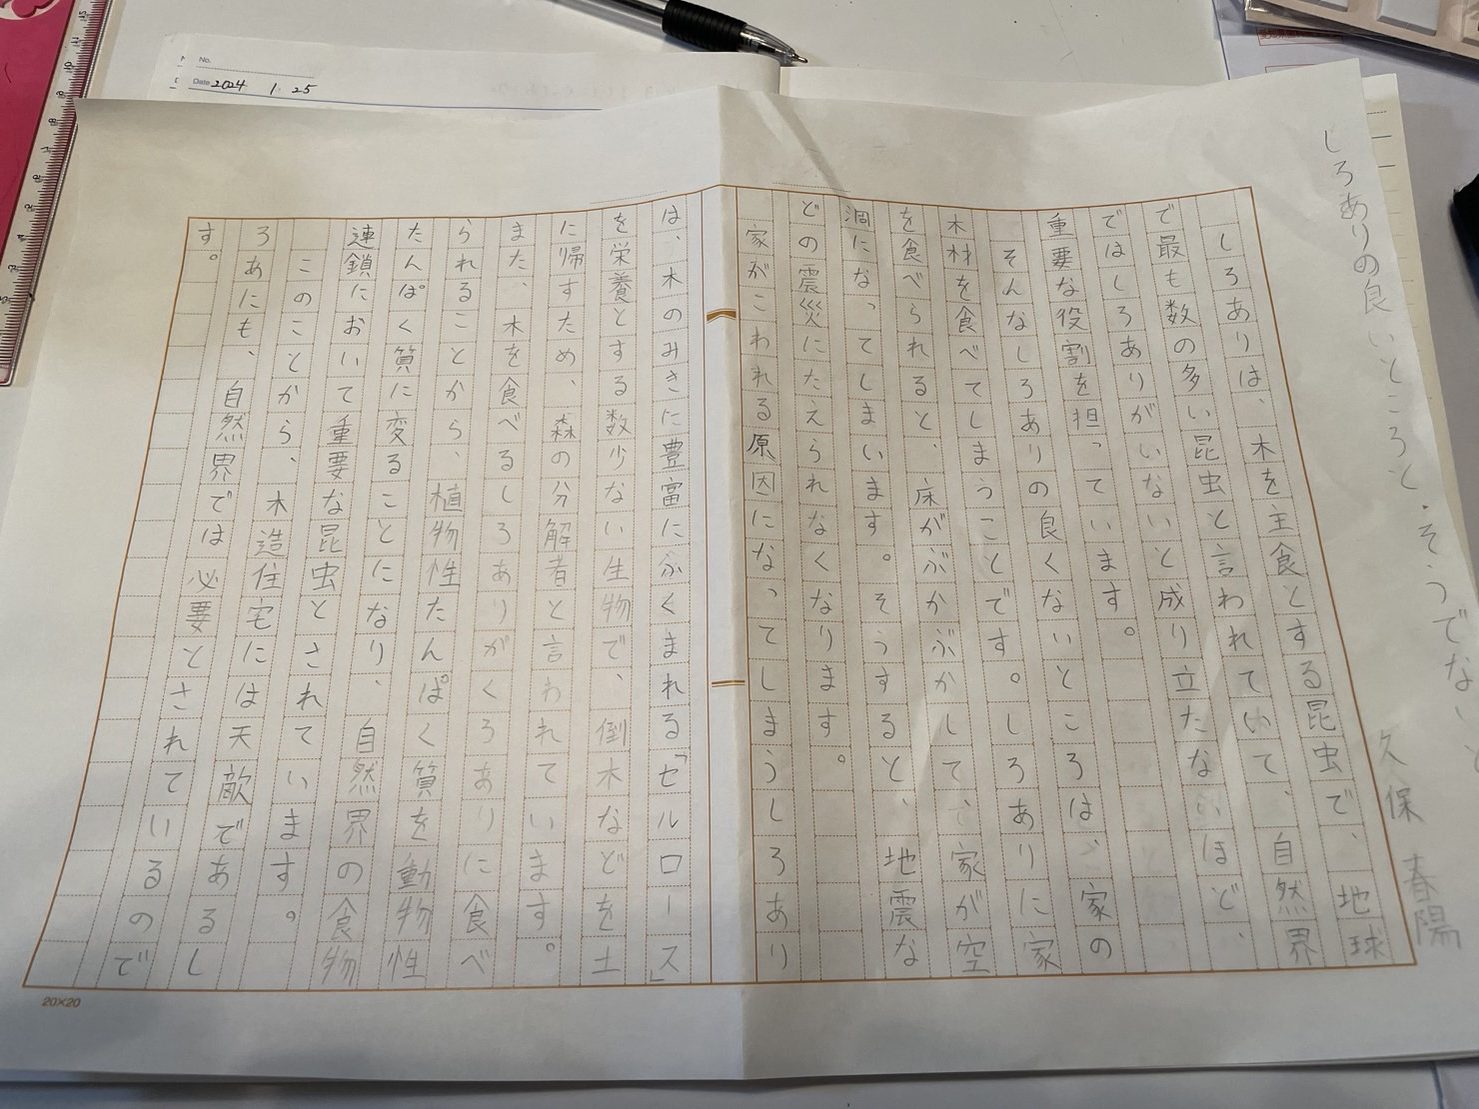 No.
Date 2024 1. 25
しろありの良いところと・そうでないと
久保 春陽
しろありは、木を主食とする昆虫で、地球
で最も数の多い昆虫と言われていて、自然界
ではしろありがいないと成り立たないほど、
重要な役割を担っています。
そんなしろありの良くないところは、家の
木材を食べてしまうことです。しろありに家
を食べられると、床がぶかぶかして、家が空
洞になってしまいます。そうすると、地震な
どの震災にたえられなくなります。
家がこわれる原因になってしまうしろあり
は、木のみきに豊富にふくまれる「セルロース」
を栄養とする数少ない生物で、倒木などを土
に帰すため、森の分解者と言われています。
また、木を食べるしろありがくろありに食べ
られることから、植物性たんぱく質を動物性
たんぱく質に変ることになり、自然界の食物
連鎖において重要な昆虫とされています。
このことから、木造住宅には天敵であるし
ろあにも、自然界では必要とされているので
す。
20×20